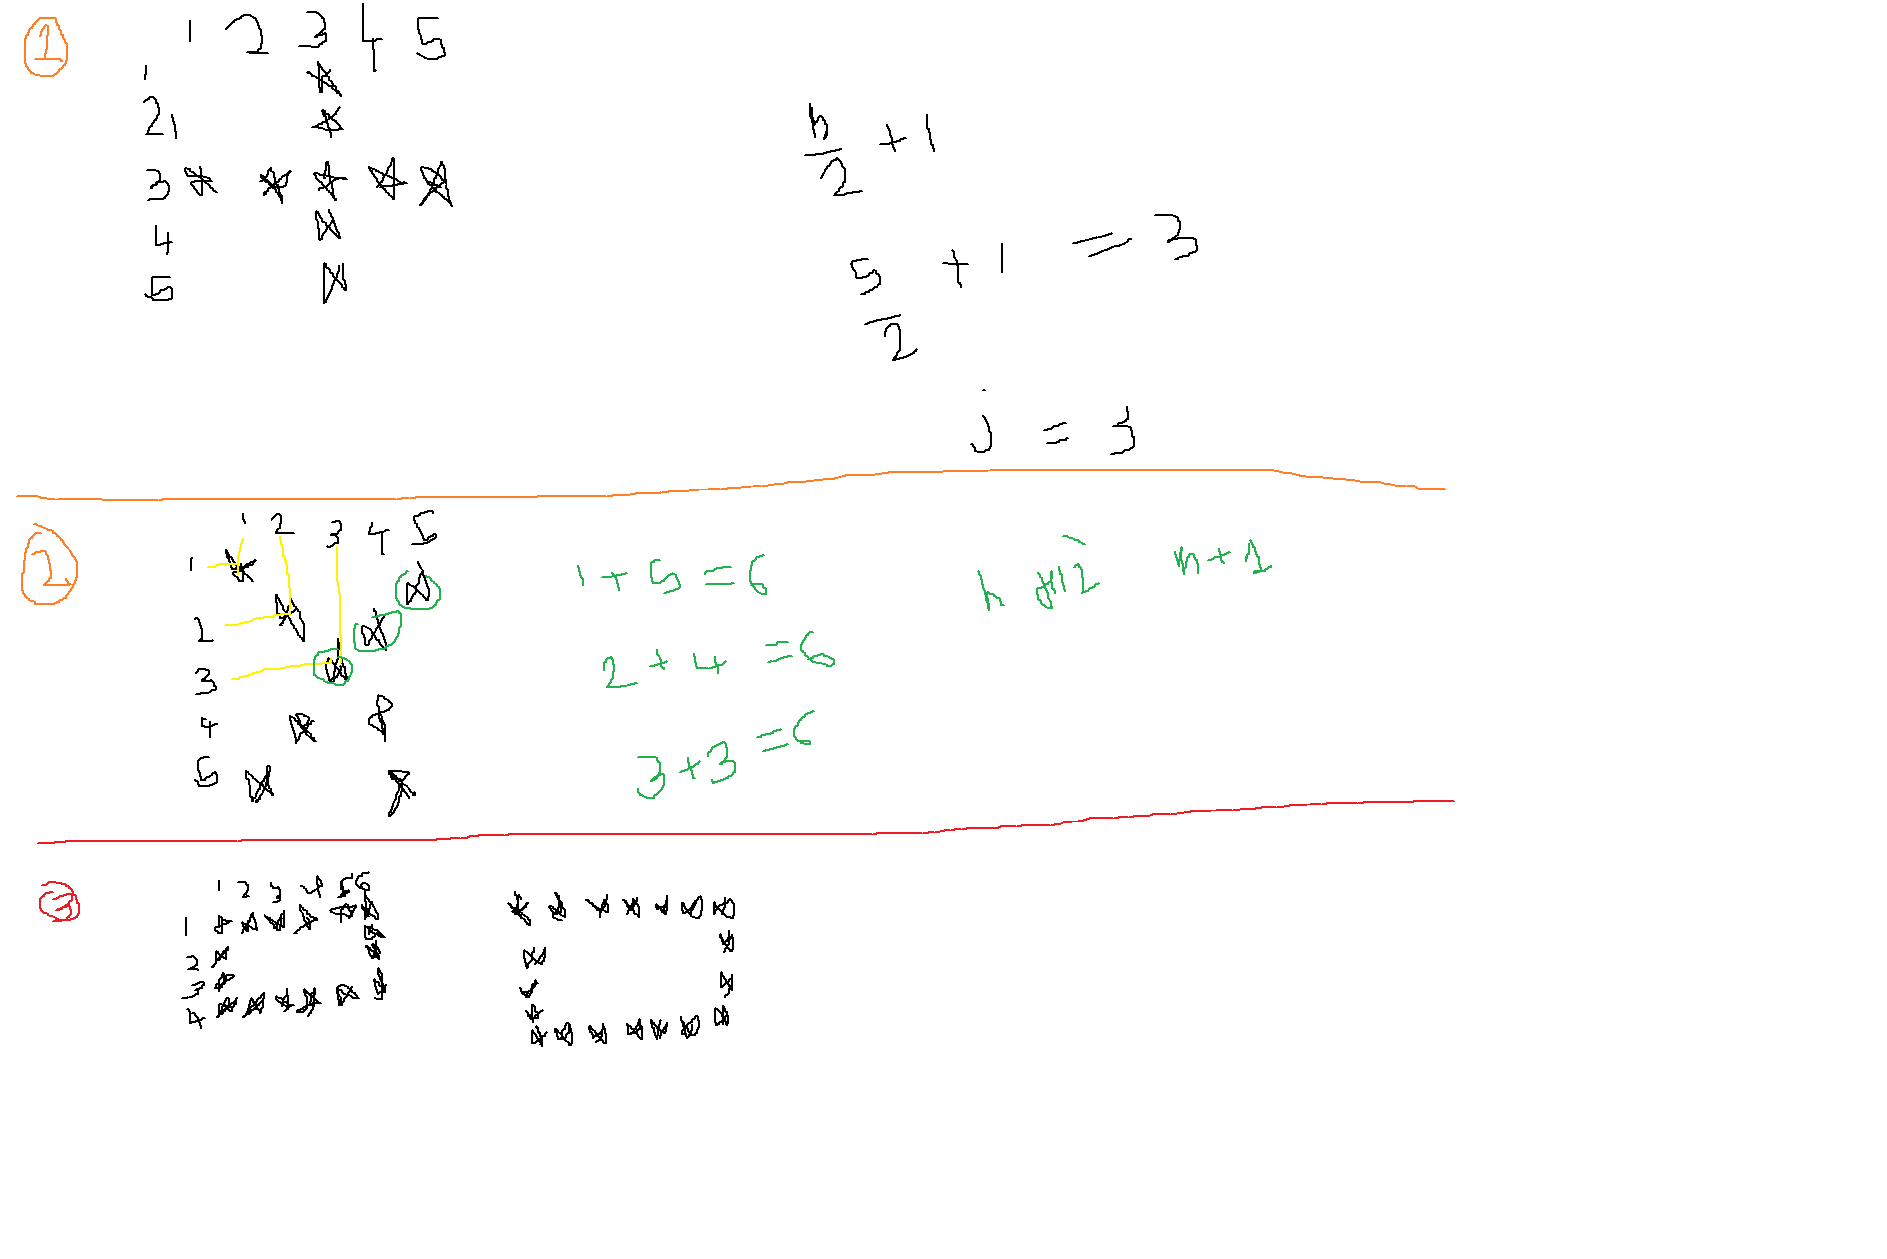 1
1 2 3 4 5
1
2 1
3
4
5
n/2 + 1
5/2 + 1 = 3
j = 3
2
1 2 3 4 5
1
2
3
4
5
1 + 5 = 6
2 + 4 = 6
3 + 3 = 6
n + 1
3
1 2 3 4 5 6
1
2
3
4